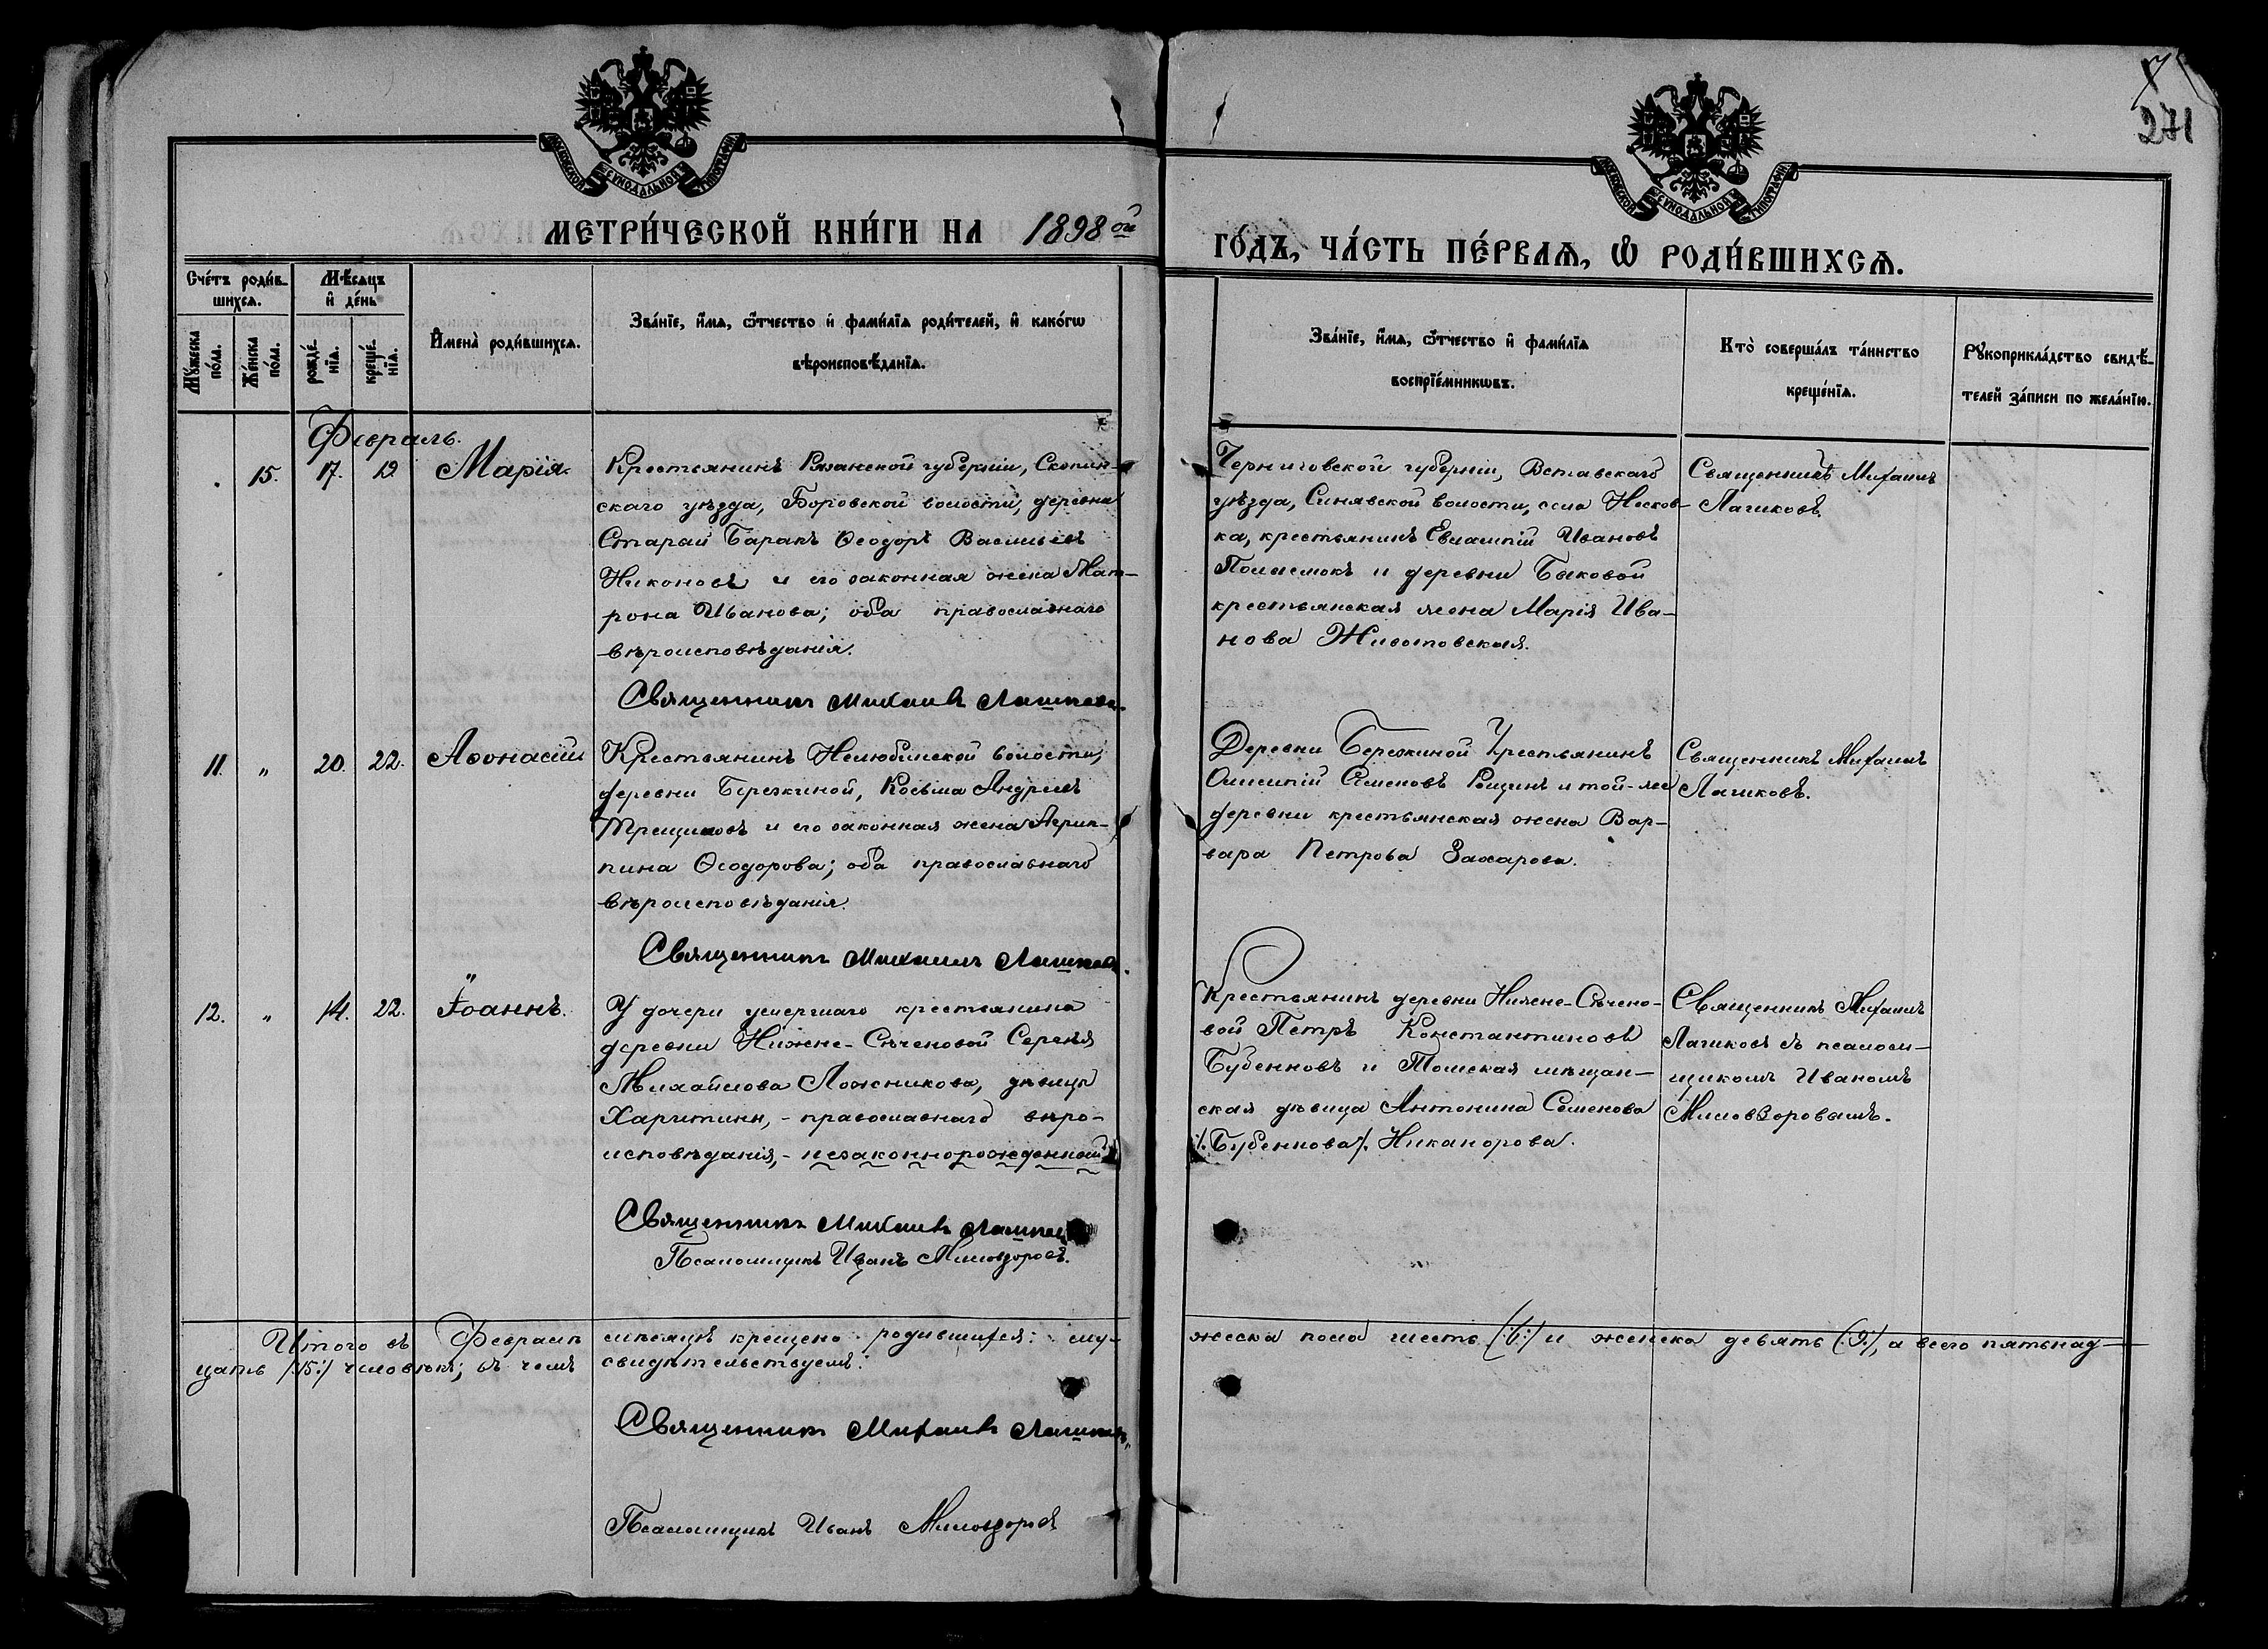 7
271
МОСКОВСКОЙ СѴНОДАЛЬНОЙ ТИПОГРАФІИ
МОСКОВСКОЙ СѴНОДАЛЬНОЙ ТИПОГРАФІИ
МЕТРИ́ЧЕСКОЙ КНИ́ГИ НА 1898ой
ГО́ДЪ, ЧА́СТЬ ПЕ́РВАѦ, Ѡ҆ РОДИ́ВШИХСѦ.
Сче́тъ роди́в-
шихсѧ.
Мѣ́сѧцъ
и҆ де́нь
Мꙋ́жеска
по́ла.
Же́нска
по́ла.
рожде́-
нїѧ.
креще́-
нїѧ.
И҆мена̀ роди́вшихсѧ.
Зва́нїе, и҆́мѧ, ѻ҆́тчество и҆ фами́лїѧ роди́телей, и҆ како́гѡ
вѣроисповѣ́данїѧ.
Зва́нїе, и҆́мѧ, ѻ҆́тчество и҆ фами́лїѧ
воспрїе́мникѡвъ.
Кто̀ соверша́лъ та́инство
креще́нїѧ.
Рꙋкоприкла́дство свидѣ́-
телей за́писи по жела́нїю.
Февраль.
15. 17. 19 Марія.
Крестьянинъ Рязанской губерніи, Скопин-
скаго уѣзда, Боровской волости, деревни
Старай Баракъ Ѳеодоръ Васильевъ
Никоновъ и его законная жена Мат-
рона Иванова; оба православнаго
вѣроисповѣданія.
Священникъ Михаилъ Лашковъ.
Черниговской губерніи,
уѣзда, Синявской волости, селаНосков-
ка, крестьянинъ Евлампій Ивановъ
и деревни Быковой
крестьянская жена Марія Ива-
нова Животовская.
Священникъ Михаилъ
Лашковъ.
11. " 20. 22. Аѳонасій
Крестьянинъ Нелюбинской волости,
деревни Березкиной, Косьма Андреевъ
Трещиловъ и его законная жена Агрип-
пина Ѳеодорова; оба православнаго
вѣроисповѣданія.
Священникъ Михаилъ Лашковъ.
Деревни Березкиной Крестьянинъ
Семеновъ Рощинъ и той-же
деревни крестьянская жена Вар-
вара Петрова Захарова.
Священникъ Михаилъ
Лашковъ.
12. " 14. 22. Іоаннъ.
У дочери умершаго крестьянина
деревни Нижне-Сѣченовой Сергѣя
Михайлова Ложникова, дѣвицы
Харитины, - православнаго вѣро-
исповѣданія, - незаконнорожденный
Священникъ Михаилъ Лашковъ
Псаломщикъ Иванъ Миловзоровъ.
Крестьянинъ деревни Нижне-Сѣчено-
вой Петръ Константиновъ
Бубенновъ и Томская мѣщан-
ская дѣвица Антонина Семенова
/:Бубеннова/: Никанорова.
Священникъ Михаилъ
Лашковъ съ псалом-
щикомъ Иваномъ
Миловзоровымъ.
Итого въ Февралѣ мѣсяцѣ крещено родившихся: му-
жеска пола шесть (:6:) и женска девять (:9:), а всего пятьнад-
цать /:15:/ человѣкъ; въ чемъ свидѣтельствуемъ:
Священникъ Михаилъ Лашковъ,
Псаломщикъ Иванъ Миловзоровъ